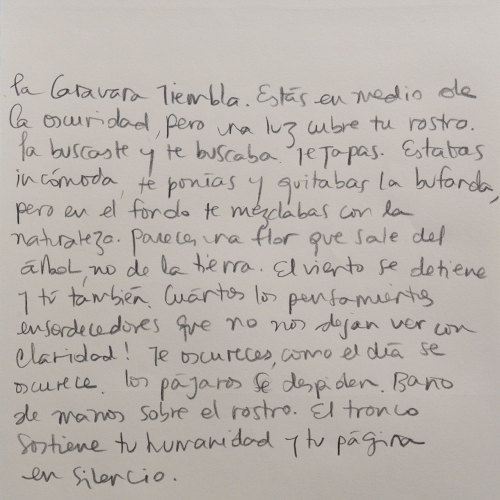 La Caravara Tiembla. Estás en medio de
la oscuridad, pero una luz cubre tu rostro.
la buscaste y te buscaba. Te tapas. Estabas
incómoda, te ponías y quitabas la bufanda,
pero en el fondo te mezclabas con la
naturaleza. Pareces una flor que sale del
árbol, no de la tierra. El viento se detiene
y tú también. Cuántos los pensamientos
ensordecedores que no nos dejan ver con
claridad! Te oscureces, como el día se
oscurece. los pájaros se despiden. Baño
de manos sobre el rostro. El tronco
sostiene tu humanidad y tu página
en silencio.